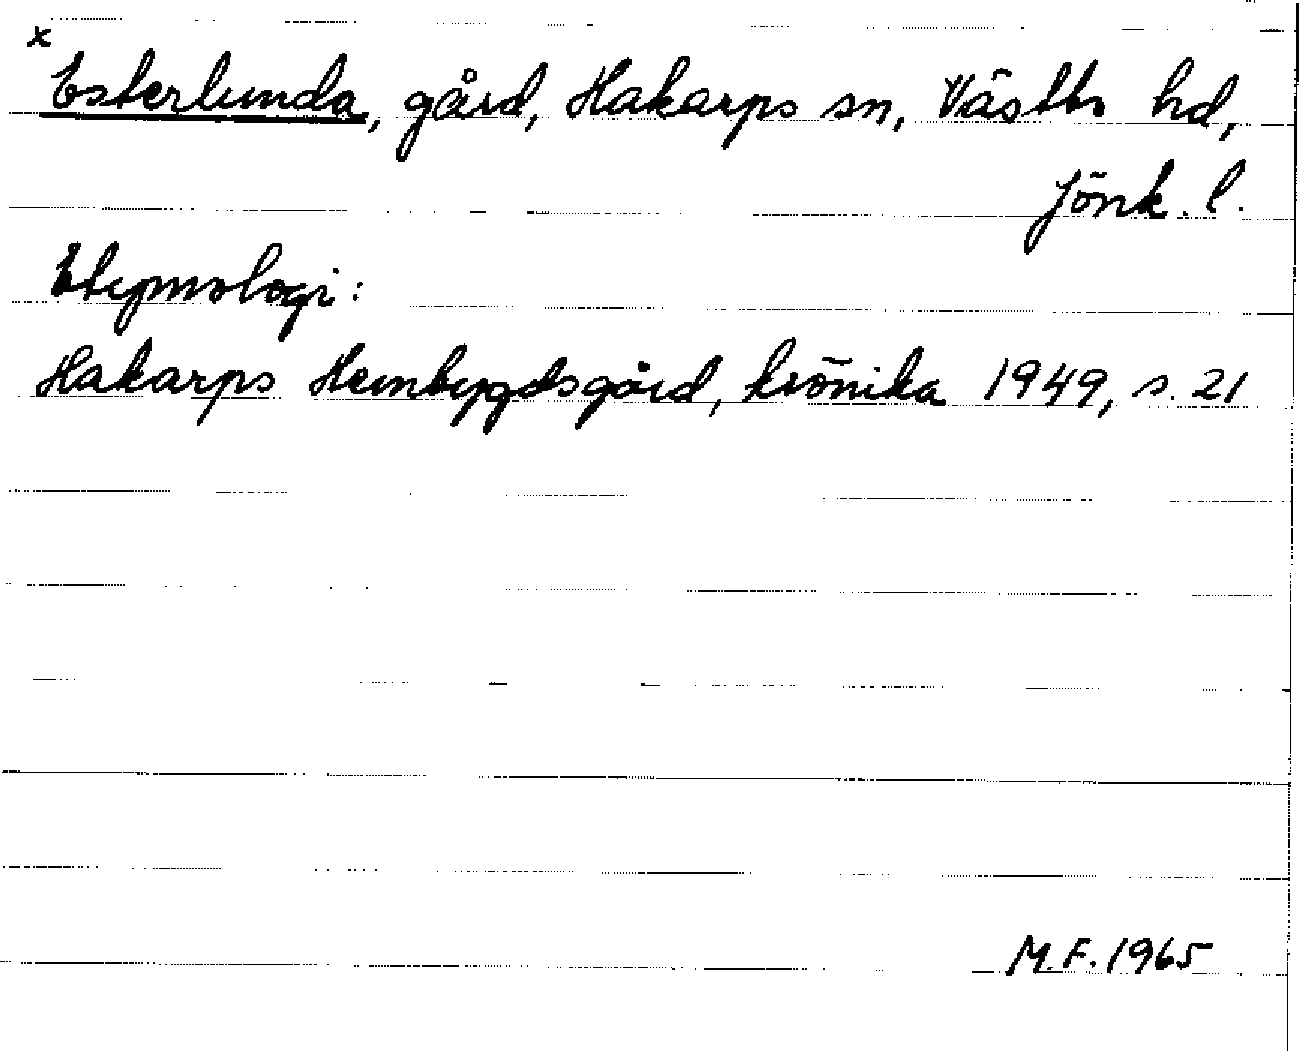 x
Esterlunda, gård, Hakarps sn, Västbo hd,
Jönk. l.
Etymologi:
Hakarps Hembygdsgård, krönika 1949, s. 21
M.F. 1965